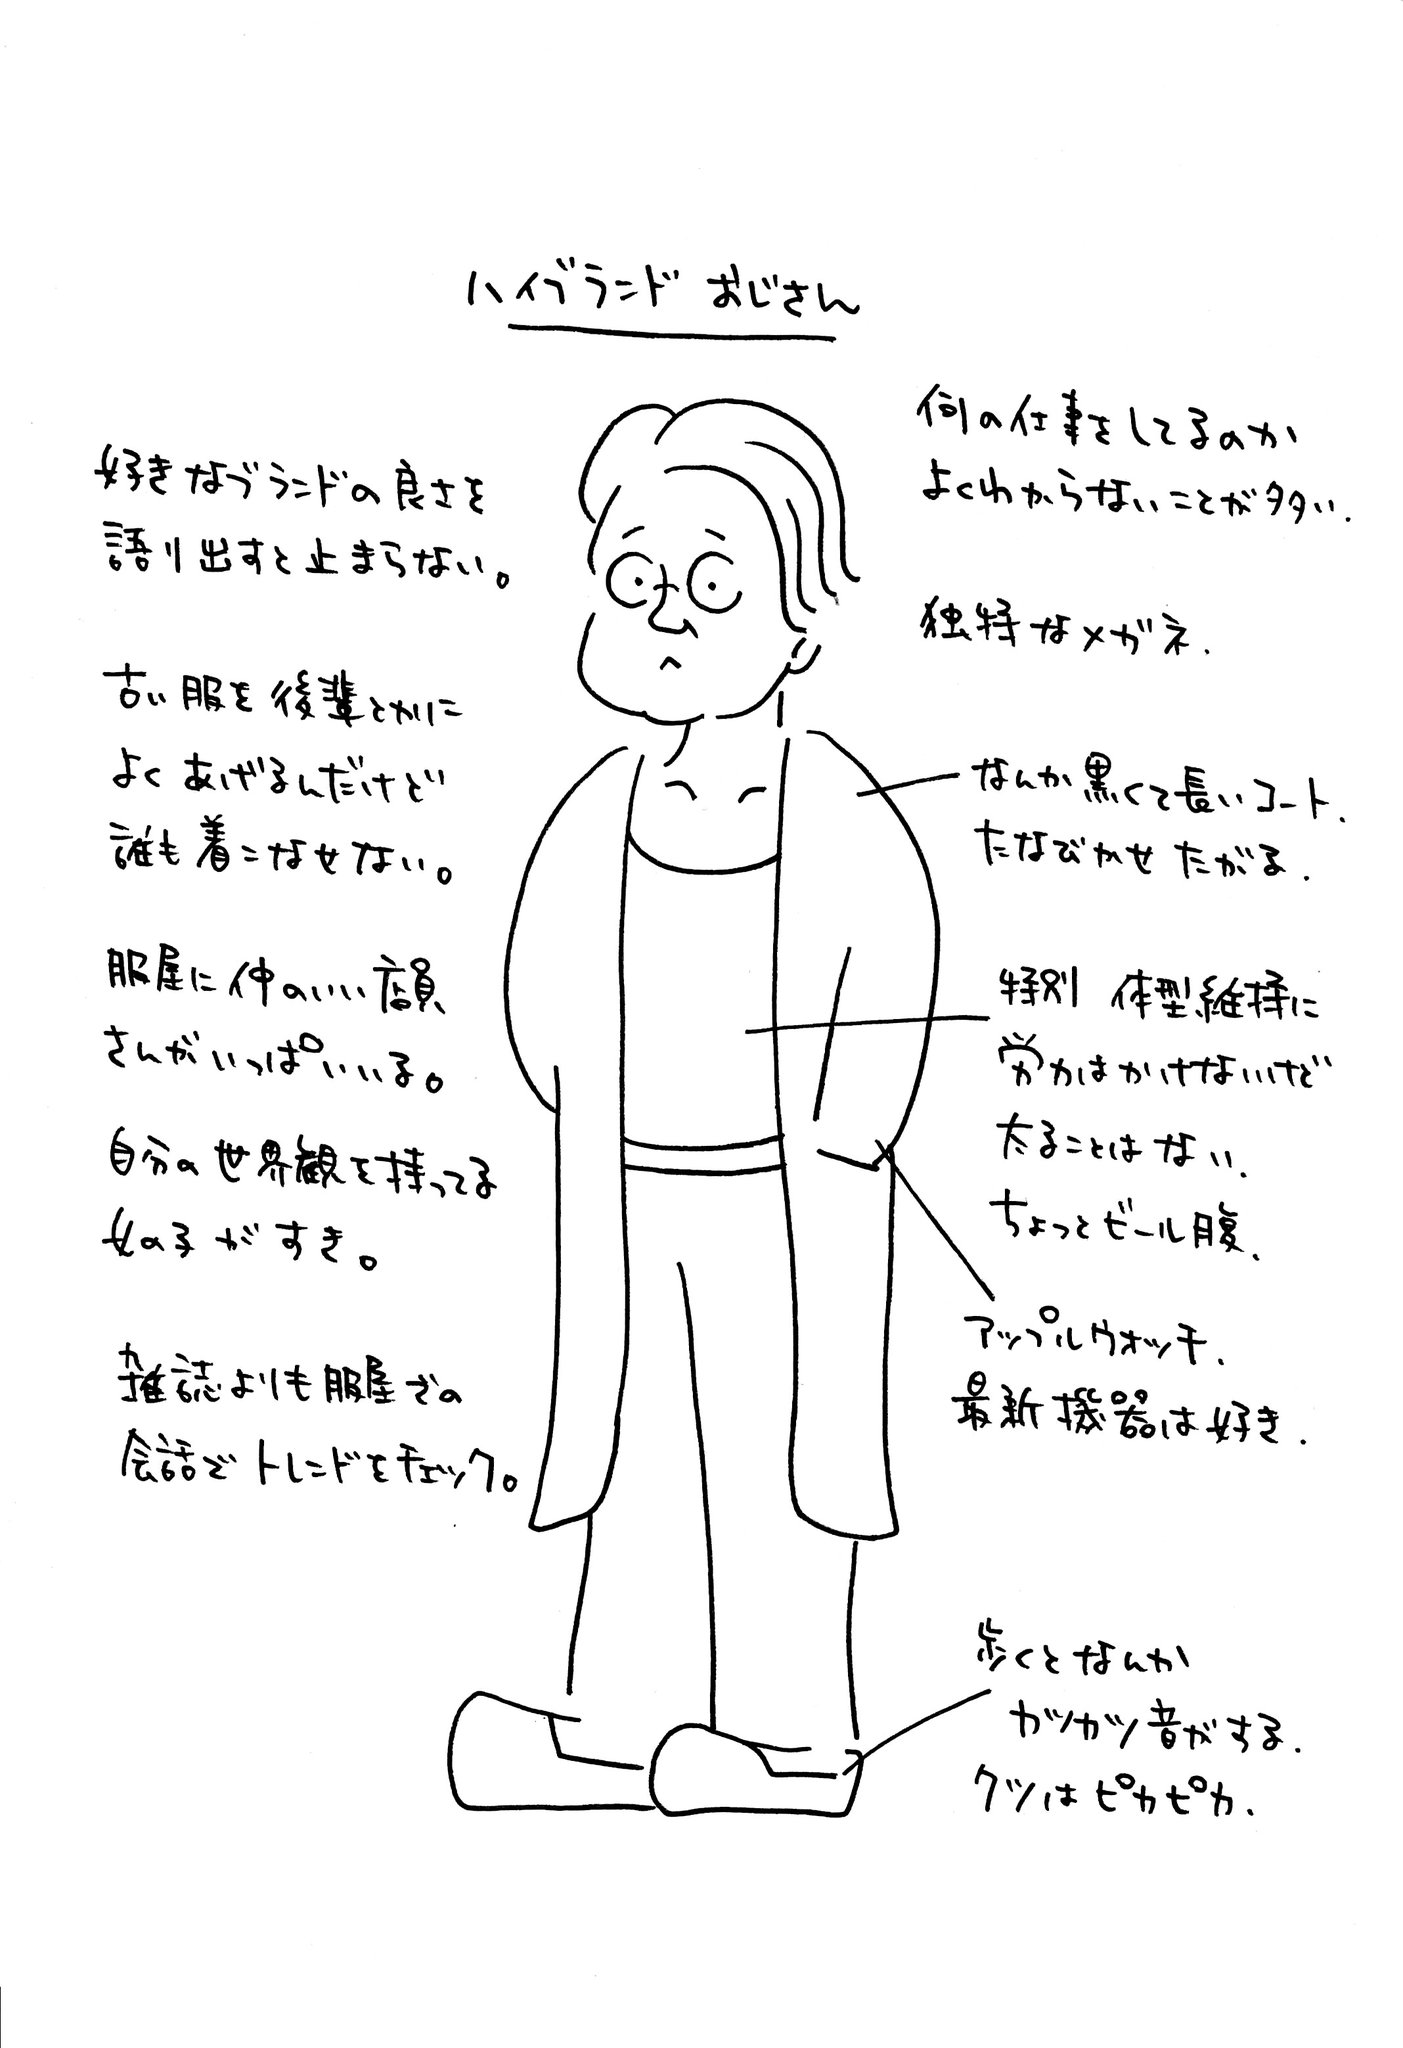 ハイブランドおじさん
好きなブランドの良さを
語り出すと止まらない。
古い服を後輩とかに
よくあげるんだけど
誰も着こなせない。
服屋に仲のいい店員
さんがいっぱいいる。
自分の世界観を持ってる
女の子がすき。
雑誌よりも服屋での
会話でトレンドをチェック。
何の仕事をしてるのか
よくわからないことが多い.
独特なメガネ.
なんか黒くて長いコート.
たなびかせたがる.
特別 体型維持に
労力はかけないけど
太ることはない.
ちょっとビール腹.
アップルウォッチ.
最新機器は好き.
歩くとなんか
カツカツ音がする.
クツはピカピカ.